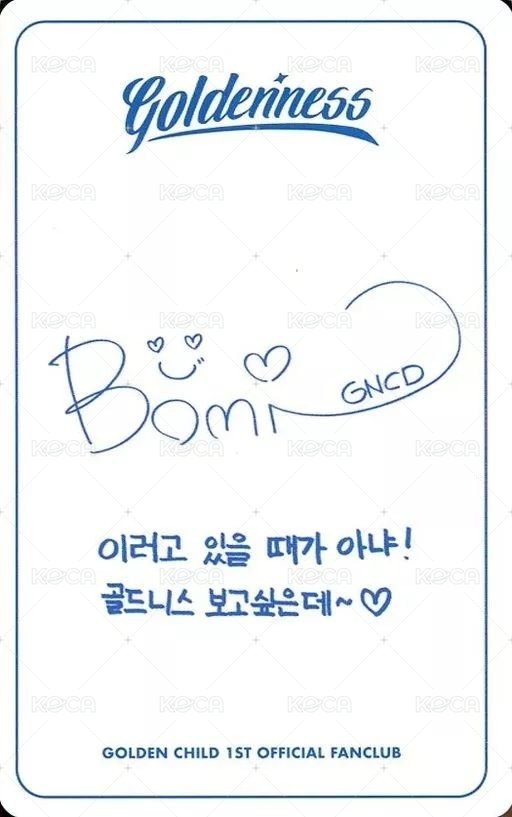 Goldenness
Bomin
GNCD
이러고 있을 때가 아냐!
골드니스 보고싶은데~♡
GOLDEN CHILD 1ST OFFICIAL FANCLUB